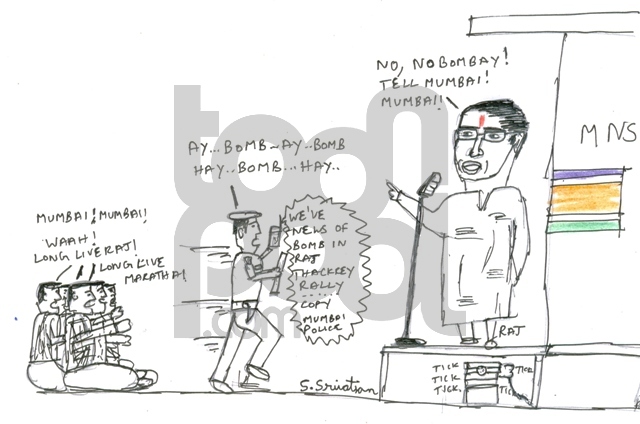 NO, NO BOMBAY!
TELL MUMBAI!
MUMBAI!
MNS
AY...BOMB~AY..BOMB
HAY..BOMB...HAY..
MUMBAI! MUMBAI!
WAAH!
LONG LIVE RAJ!
LONG LIVE
MARATHA!
WE'VE
NEWS OF
BOMB IN
RAJ
THACKREY
RALLY
......
COPY
MUMBAI
POLICE
RAJ
TICK
TICK
TICK.
TICK
TICK
S. Srivatsan
toonpool.com